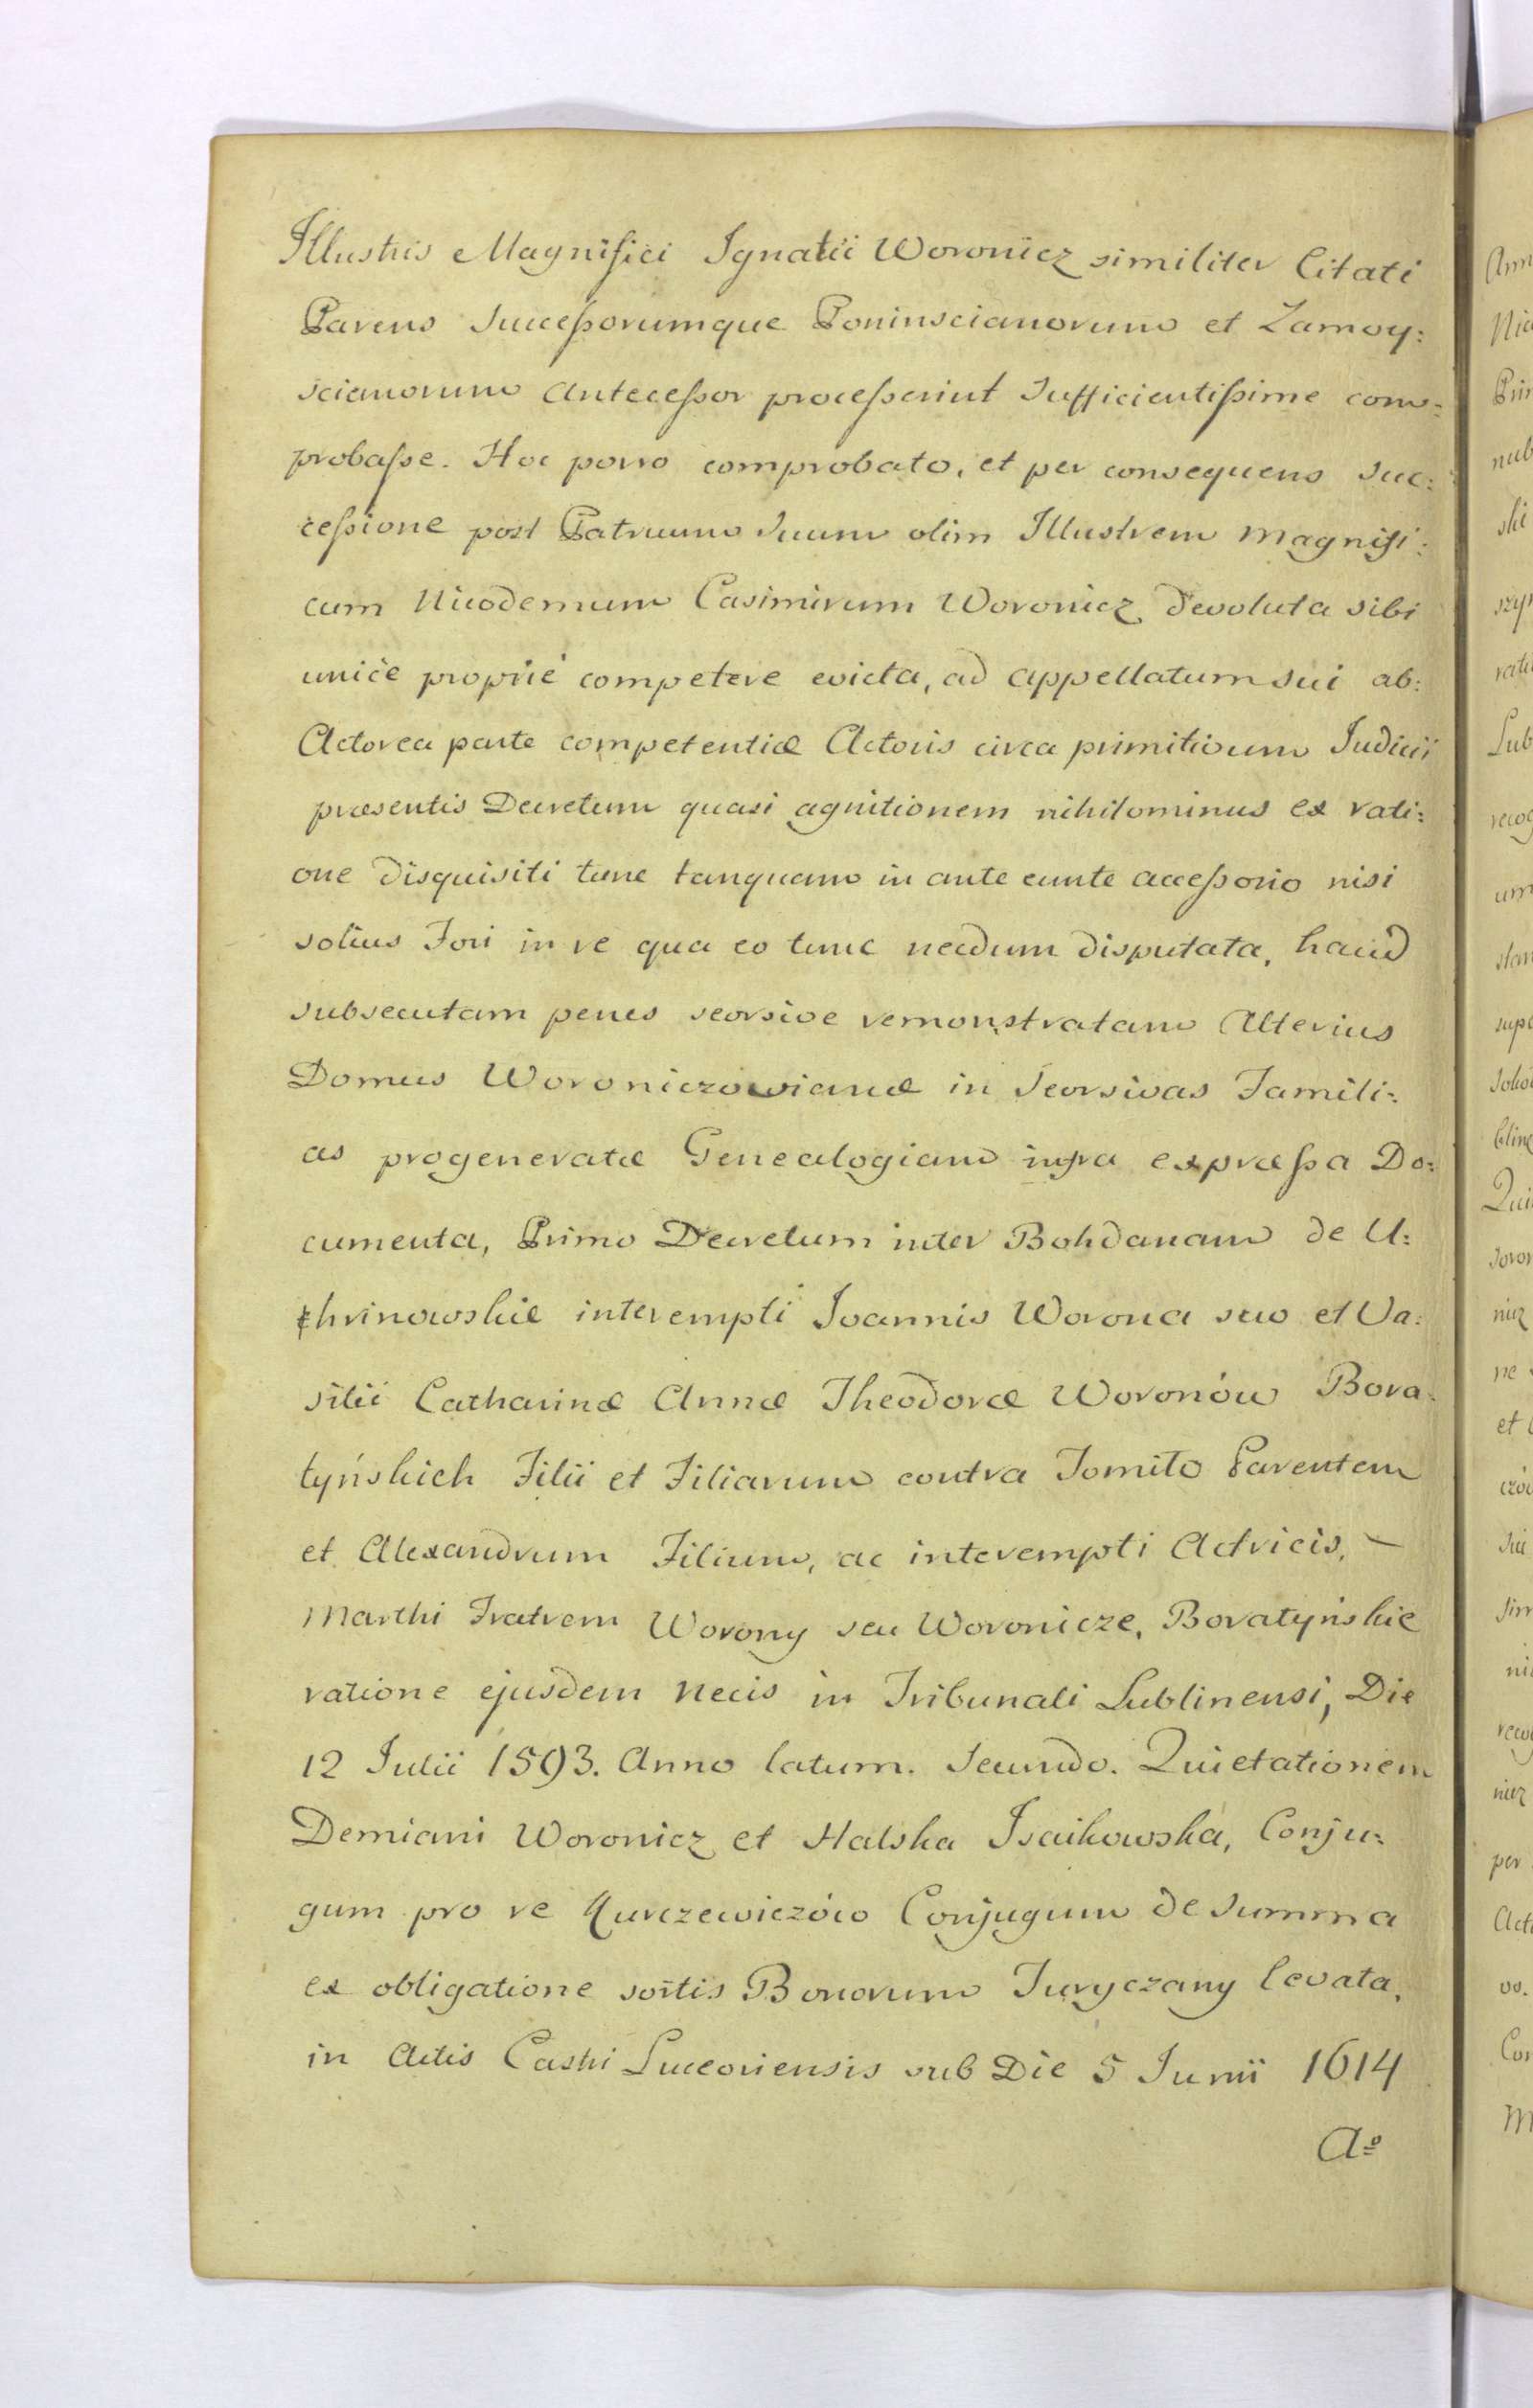 Illustris Magnifici Ignatii Woronicz similiter Citati
Parens Successorumque Poninscianorum et Zamoy:
scianorum Antecessor processerint sufficientissime com:
probasse. Hoc porro comprobato, et per consequens suc:
cessione post Patruum suum olim Illustrem Magnifi:
cum Nicodemum Casimirum Woronicz devoluta sibi
unicè propriè competere evicta, ad appellatum sui ab:
Actorea parte competentiæ Actoris circa primitivum Judicii
præsentis Decretum quasi agnitionem nihilominus ex rati:
one disquisiti tunc tanquam in ante eunte accessorio nisi
solius Fori in re qua eo tunc necdum disputata, haud
subsecutam penes seorsive remonstratam Alterius
Domus Woroniczowianæ in seorsivas Famili:
as progeneratæ Genealogiam infra expræssa Do:
cumenta, Primo Decretum inter Bohdanam de U:
hrinowskie interempti Joannis Worona suo et Va:
silii Catharinæ Annæ Theodoræ Woronów Bora:
tyńskich Filii et Filiarum contra Tomito Parentem
et Alexandrum Filium, ac interempti Actricis,
Marthi Fratrem Worony seu Woronicze, Boratyńskie
ratione ejusdem Necis in Tribunali Lublinensi, Die
12 Julii 1593. Anno latum. Secundo. Quietationem
Demiani Woronicz et Halska Isaikowska, Conju:
gum pro re Kurczewiczów Conjugum de summa
ex obligatione sortis Bonorum Juryczany levata,
in Actis Castri Luceoriensis sub Die 5 Junii 1614
Aº